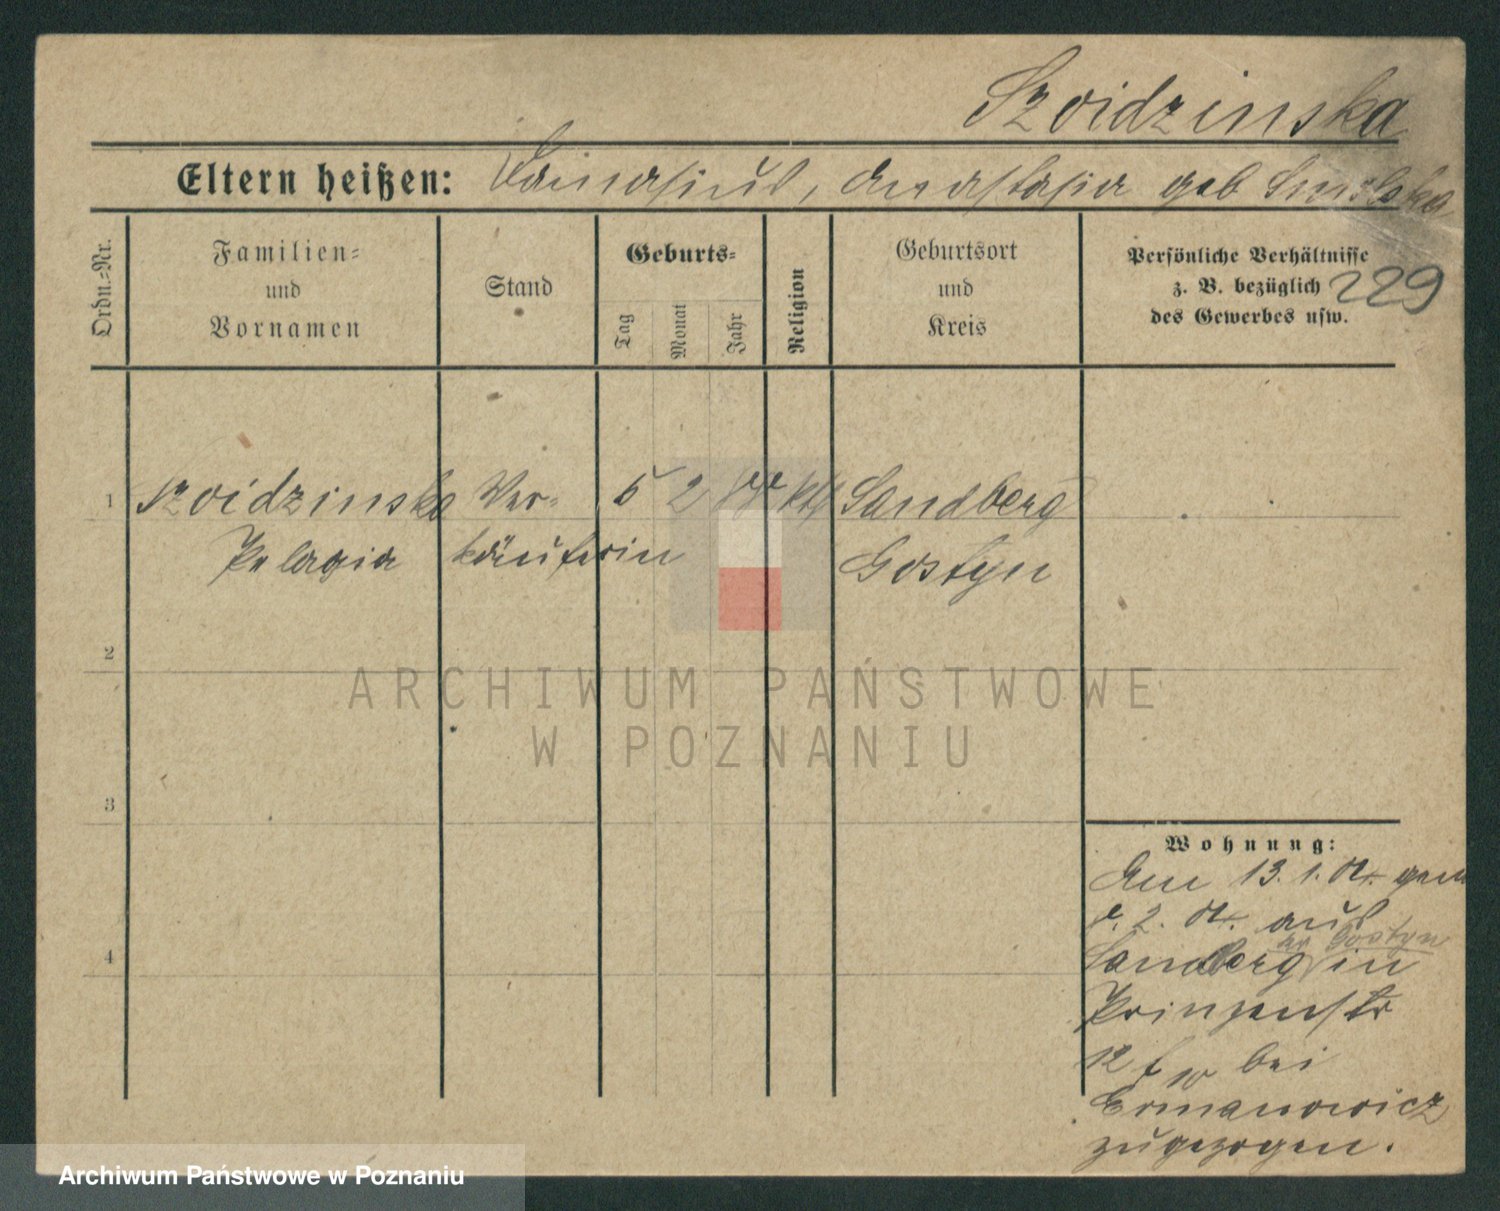 Szoidzinska
Eltern heißen: Damasius, Anastasia geb Smolska
Ordn.-Nr.
Familien-
und
Vornamen
Stand
Geburts-
Tag
Monat
Jahr
Religion
Geburtsort
und
Kreis
Persönliche Verhältnisse
z. B. bezüglich
des Gewerbes usw.
229
1 Szoidzinska Ver- 5 2 kth Sandberg
Pelagia käuferin Gostyn
2
ARCHIWUM PAŃSTWOWE
W POZNANIU
3
Wohnung:
Am 13. 1. gem
2. aus
Kr. Gostyn
Sandberg in
Prinzenstr
12 bei
Ermanowicz
zugezogen.
4
Archiwum Państwowe w Poznaniu